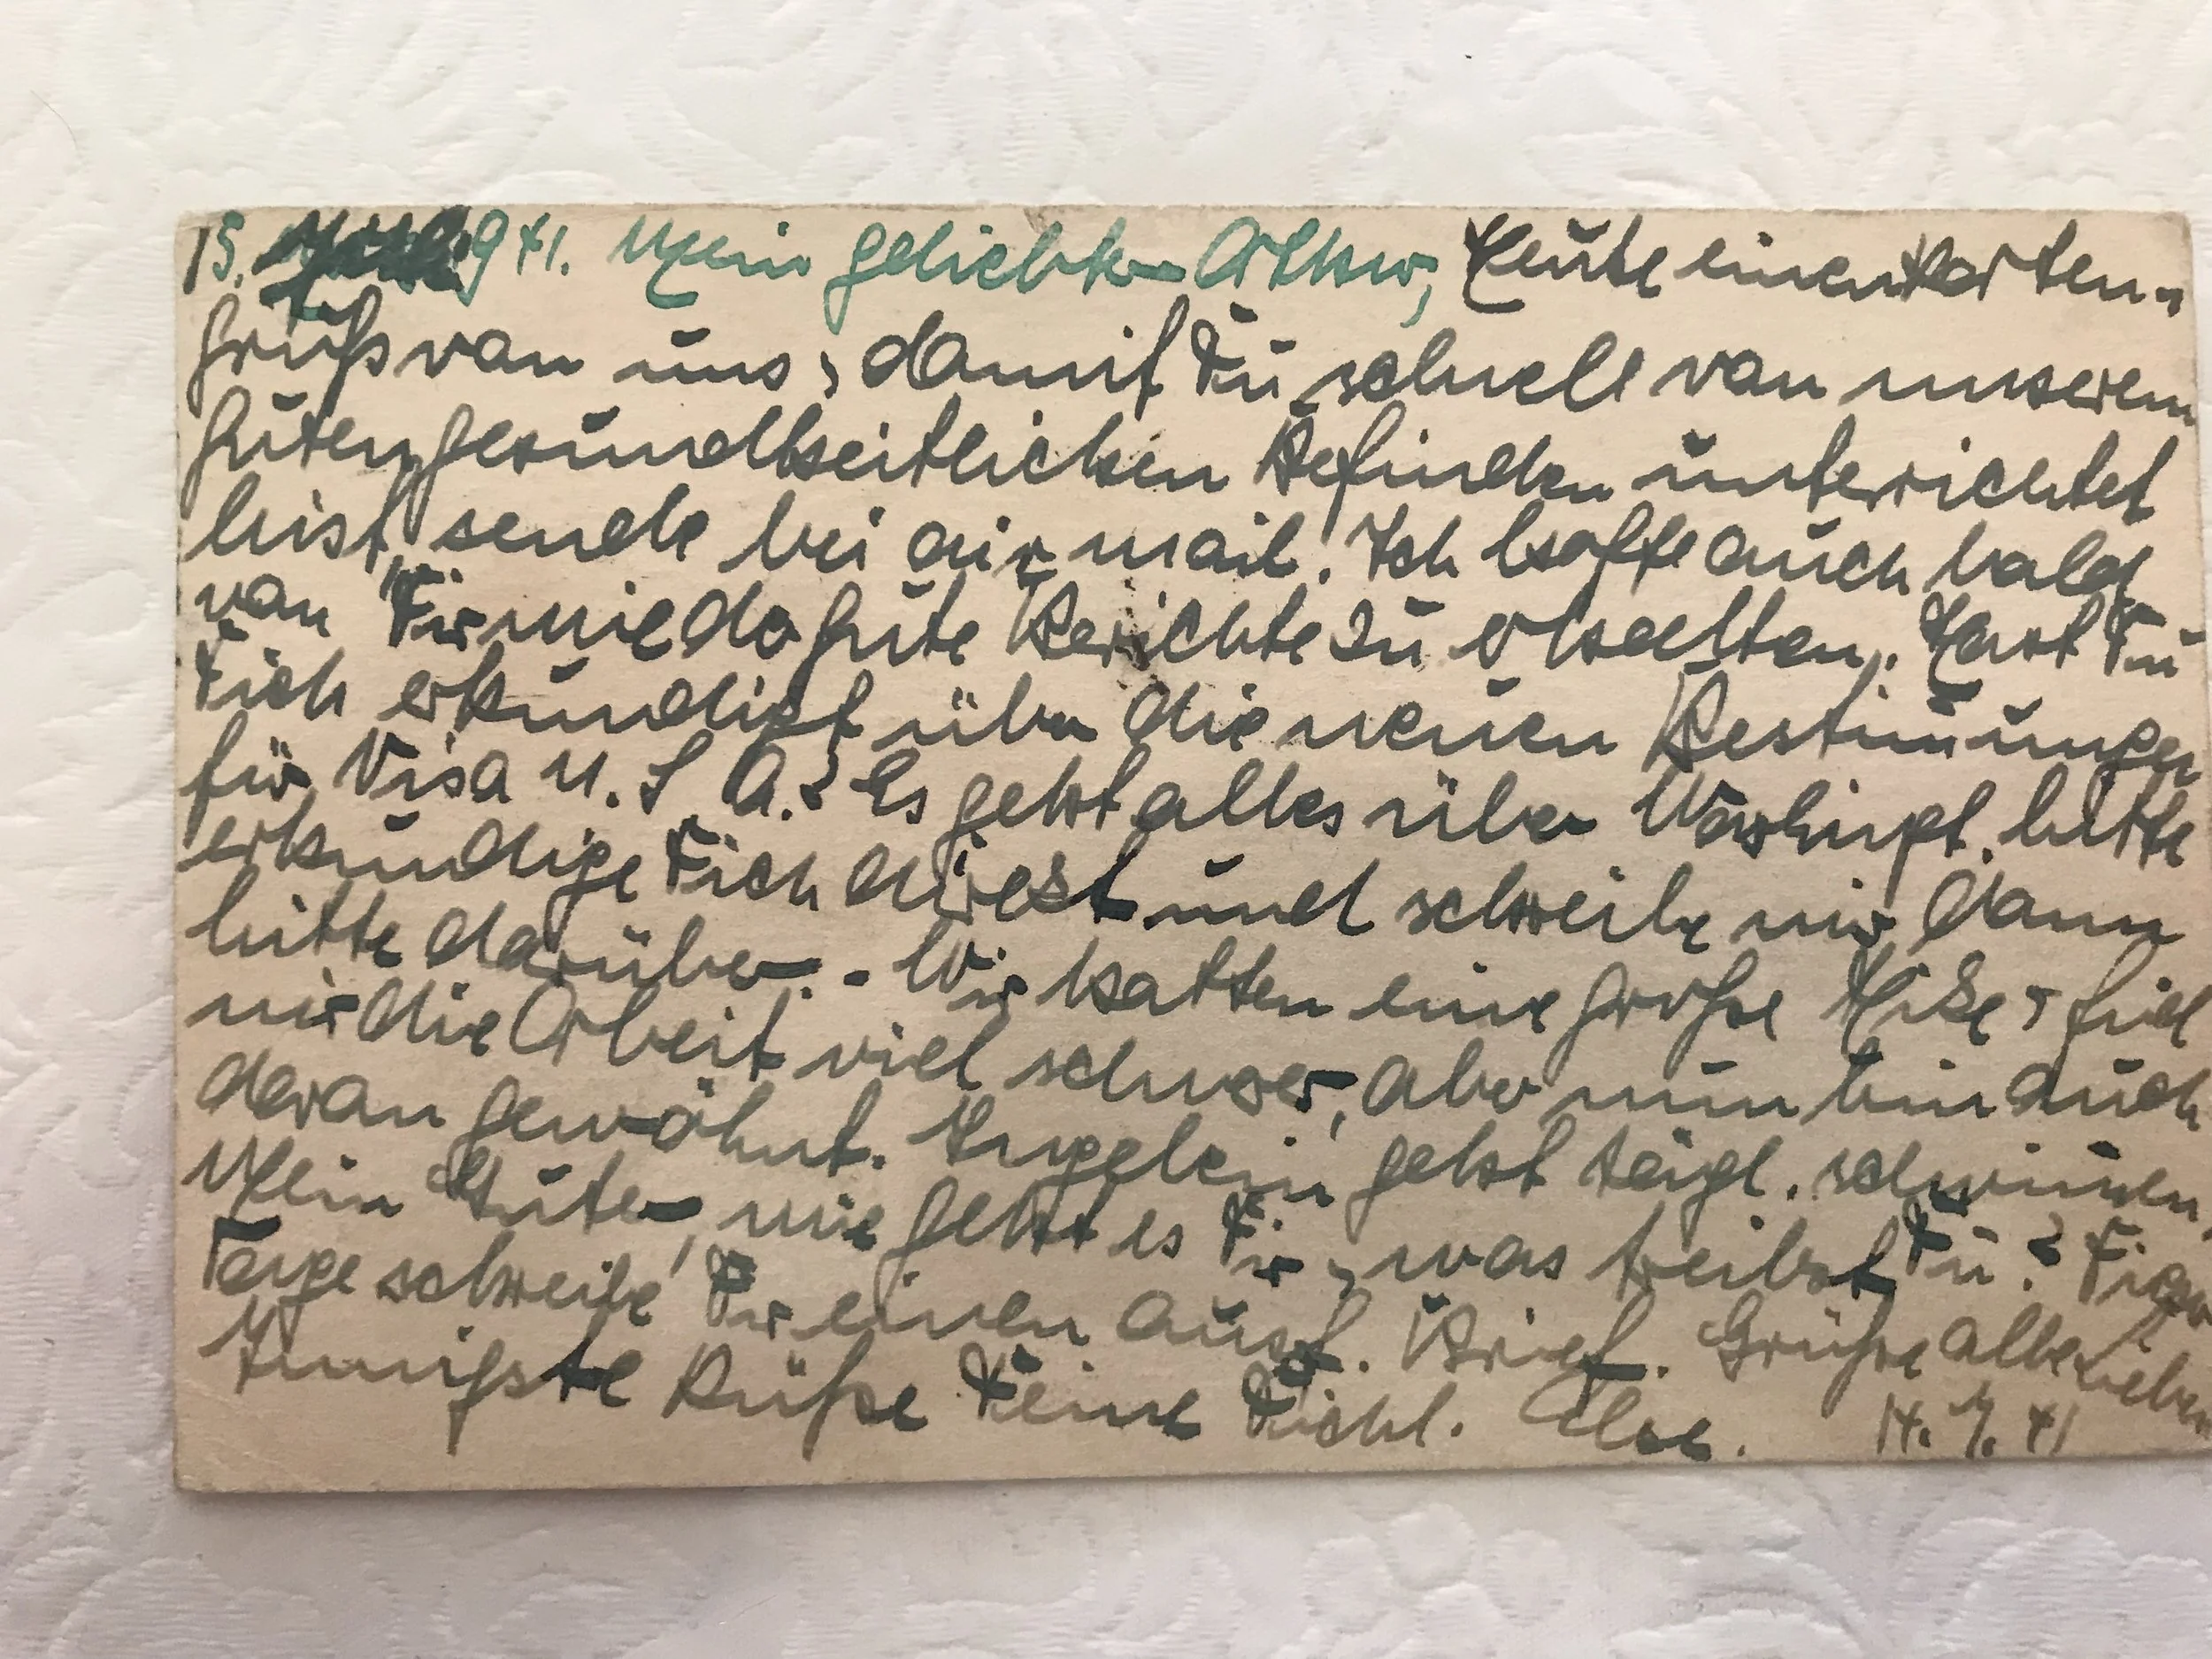 15. 941. Mein geliebter Arthur, Heute einen Karten-
gruß von uns, damit Du schnell von unserem
guten gesundheitlichen Befinden unterrichtet
bist, sende bei air mail. Ich hoffe auch bald
von Dir wieder gute Berichte zu erhalten. Hast Du
Dich erkundigt über die neuen Bestim̄ungen
für Visa U. S. A.? Es geht alles über Washingt. bitte
erkundige Dich direkt und schreibe mir dann
bitte darüber. - Wir hatten eine große Hitze, fiel
mir die Arbeit viel schwer, aber nun bin auch
daran gewöhnt. Ingelein geht tägl. schwim̄en.
Mein Guter, wie geht es Dir, was treibst Du? Dieser
Tage schreibe Dir einen ausf. Brief. Grüße alle Lieben
Innigste Küße Deine Dichl. Else. 14. 7. 41